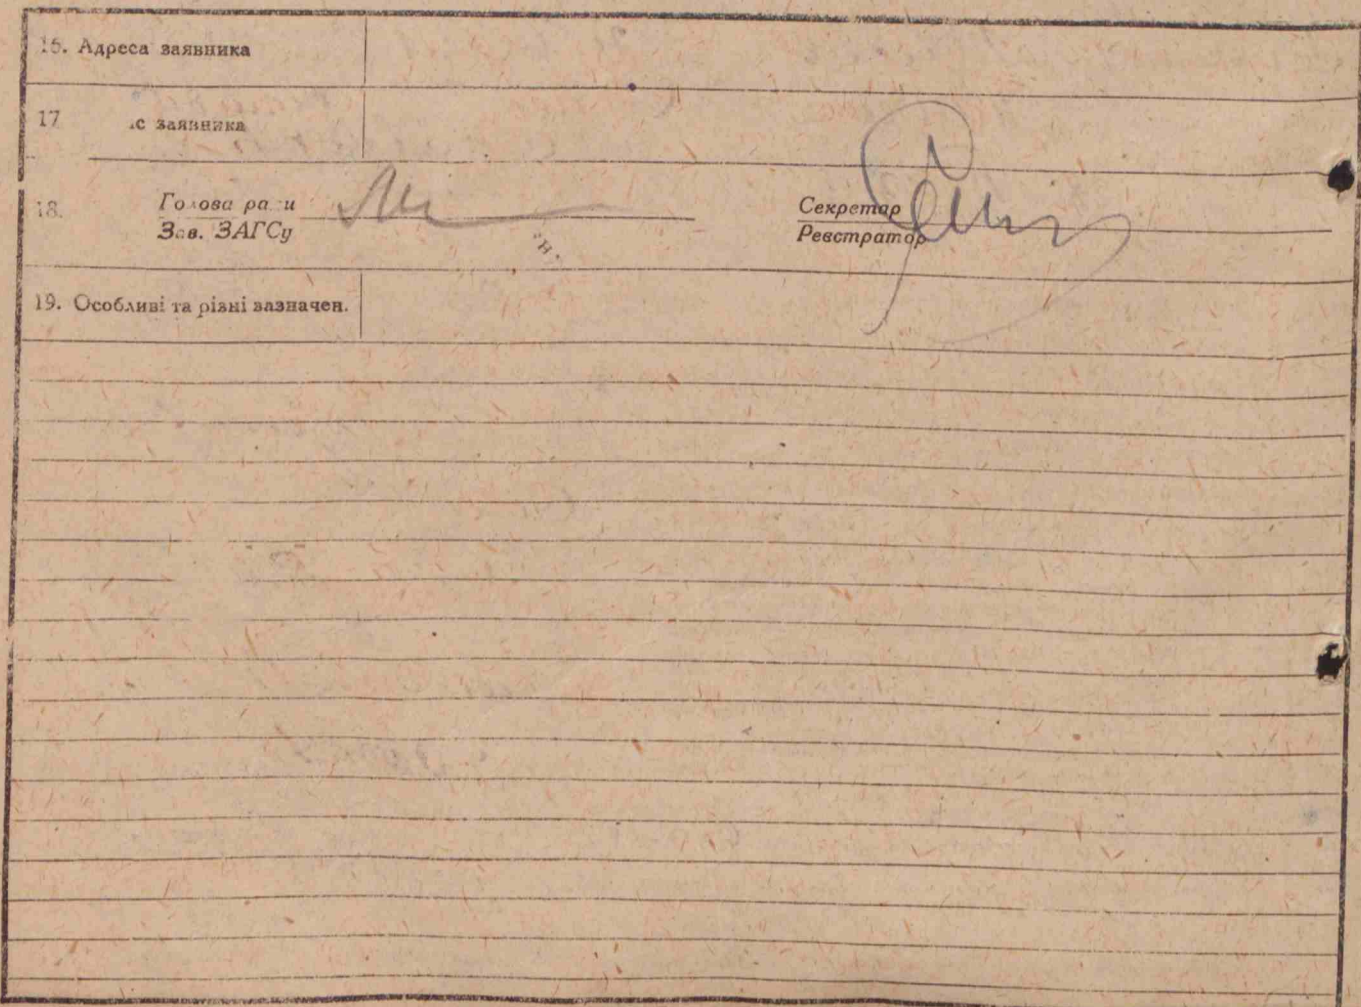 15. Адреса заявника
17 .с заявника
18. Голова ра и
Зав. ЗАГСу
Секретар
Реєстратор
19. Особливі та різні вазначен.